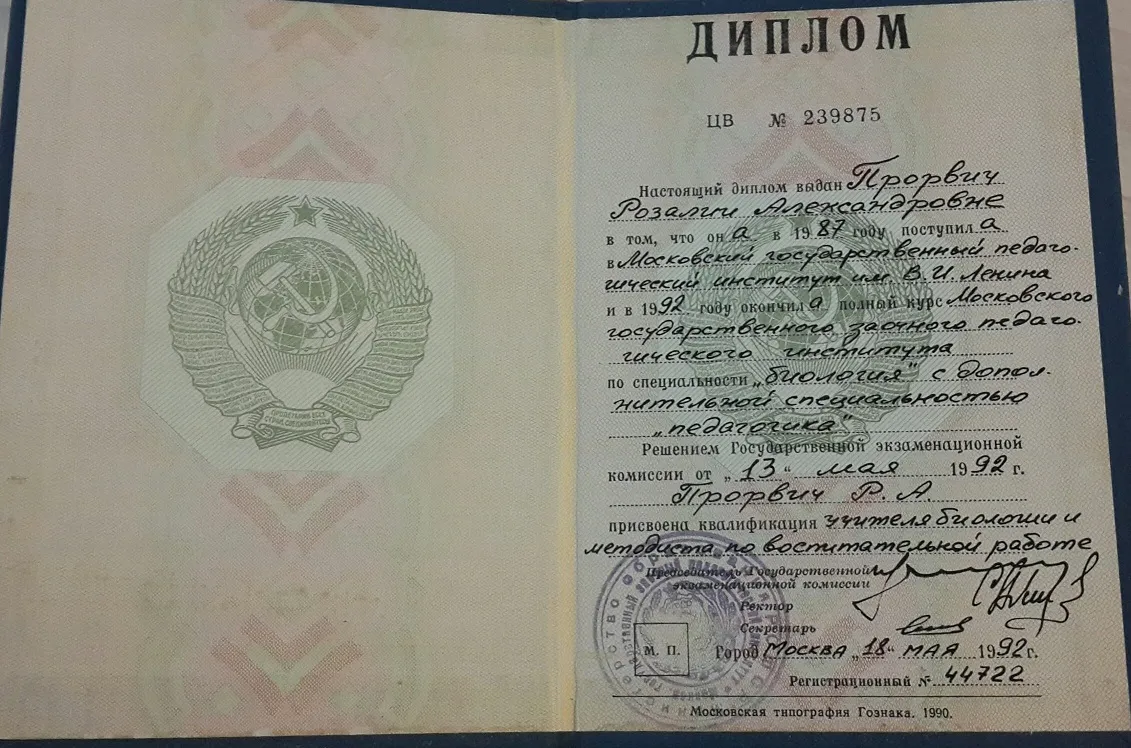 ПРОЛЕТАРИИ ВСЕХ
СТРАН, СОЕДИНЯЙТЕСЬ!
ДИПЛОМ
ЦВ № 239875
Настоящий диплом выдан Прорвич
Розалии Александровне
в том, что он а в 1987 году поступил а
в Московский государственный педаго-
гический институт им. В.И. Ленина
и в 1992 году окончил а полный курс Московского
государственного заочного педаго-
гического института
по специальности „биология" с допол-
нительной специальностью
„педагогика"
Решением Государственной экзаменационной
комиссии от „13" мая 1992 г.
Прорвич Р. А.
присвоена квалификация учителя биологии и
методиста по воспитательной работе
Председатель Государственной
экзаменационной комиссии
Ректор
Секретарь
М. П.
Город Москва „18" мая 1992 г.
Регистрационный № 44722
Московская типография Гознака. 1990.